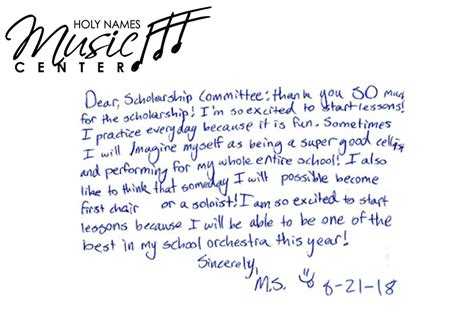 HOLY NAMES
Music
CENTER
Dear, Scholarship Committee: thank you SO much
for the scholarship! I'm so excited to start lessons!
I practice everyday because it is fun. Sometimes
I will Imagine myself as being a super good cellist
and performing for my whole entire school! I also
like to think that someday I will possible become
first chair or a soloist! I am so excited to start
lessons because I will be able to be one of the
best in my school orchestra this year!
Sincerely,
M.S. 8-21-18